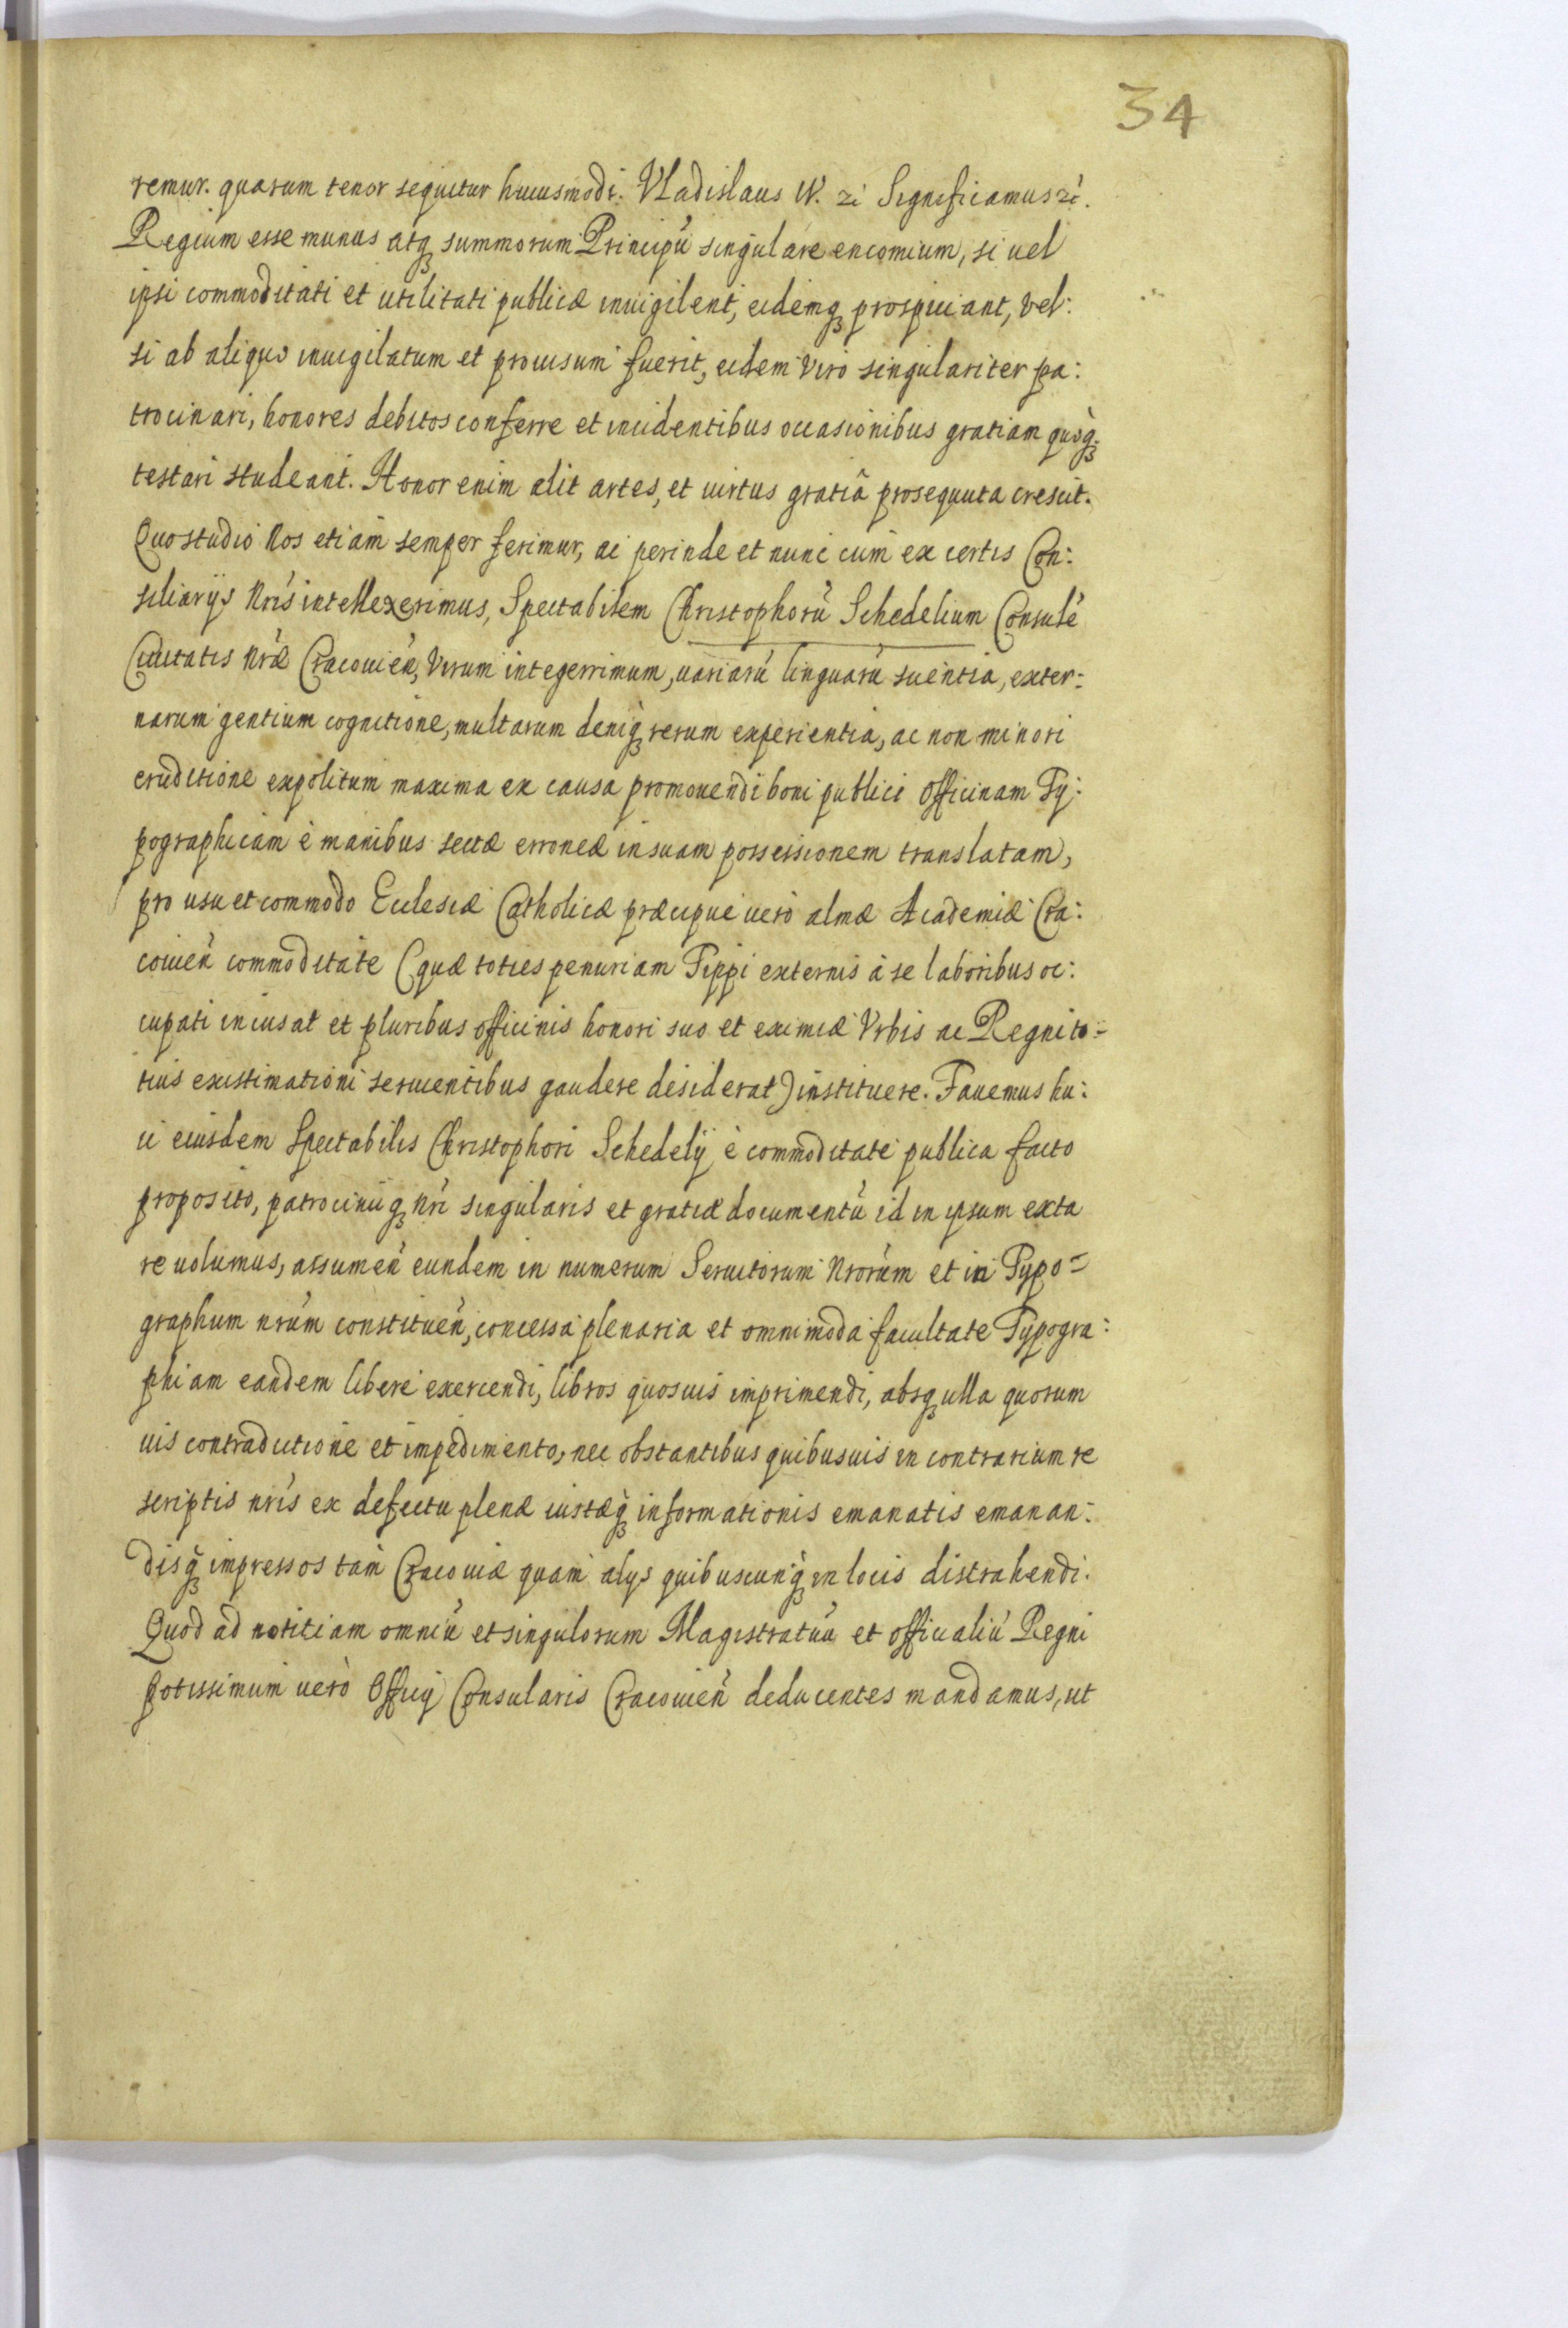 34
remur. quarum tenor sequitur huiusmodi. Vladislaus IV. &c Significamus &c.
Regium esse munus atq summorum Principũ singulare encomium, si uel
ipsi commoditati et utilitati publicæ inuigilent, eidemq prospiciant, vel:
si ab aliquo inuigilatum et prouisum fuerit, eidem viro singulariter pa:
trocinari, honores debitos conferre et incidentibus occasionibus gratiam quoq
testari studeant. Honor enim alit artes, et uirtus gratiâ prosequuta crescit.
Quo studio Nos etiam semper ferimur, ac perinde et nunc cum ex certis Con:
siliarijs Nris intellexerimus, Spectabilem Christophorũ Schedelium Consulẽ
Ciuitatis Nræ Cracouieñ, Virum integerrimum, uariarũ linguarũ scientia, exter:
narum gentium cognitione, multarum deniq rerum experientia, ac non minori
eruditione expolitum maxima ex causa promouendi boni publici Officinam Ty:
pographicam è manibus sectæ erroneæ in suam possessionem translatam,
pro usu et commodo Ecclesiæ Catholicæ præcipue uerò almæ Academiæ Cra:
couieñ commoditate (quæ toties penuriam Tippi externis à se laboribus oc:
cupati incusat et pluribus officinis honori suo et eximiæ Vrbis ac Regni to=
tius existimationi seruientibus gaudere desiderat) instituere. Fauemus hu:
ic eiusdem Spectabilis Christophori Schedelij è commoditate publica facto
proposito, patrociniiq Nri singularis et gratiæ documentũ id in ipsum exta
re uolumus, assumeñ eundem in numerum Seruitorum Nrorum et in Typo=
graphum nrum constitueñ, concessa plenaria et omnimoda facultate Typogra:
phiam eandem libere exercendi, libros quosuis imprimendi, absq ulla quorum
uis contradictione et impedimento, nec obstantibus quibusuis in contrarium re
scriptis nris ex defectu plenæ iustæq informationis emanatis emanan:
disq impressos tam Cracouiæ quam alijs quibuscunq in locis distrahendi.
Quod ad notitiam omniũ et singulorum Magistratuũ et officialiũ Regni
potissimum uerò Officij Consularis Cracouieñ deducentes mandamus, ut